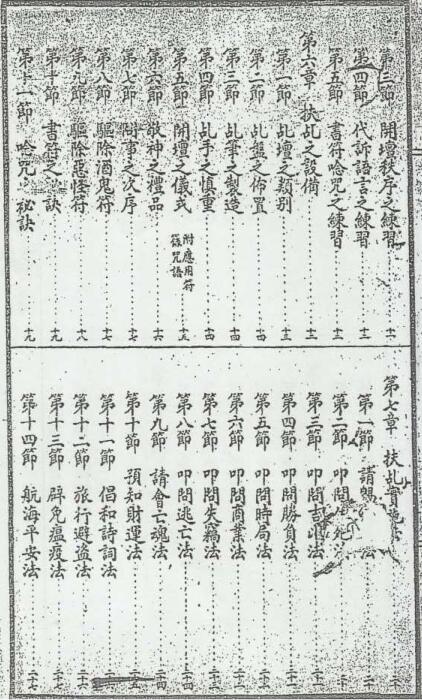 第三節 開壇秩序之練習 十一
第四節 代訴語言之練習 十二
第五節 書符唸咒之練習 十三
第六章 扶乩之設備 十三
第一節 乩壇之類別 十三
第二節 乩盤之佈置 十四
第三節 乩筆之製造 十四
第四節 乩手之慎重 十四
第五節 開壇之儀式 附應用符籙咒語 十五
第六節 敬神之禮品 十六
第七節 問事之次序 十七
第八節 驅除酒鬼符 十七
第九節 驅除惡怪符 十八
第十節 書符之訣 十九
第十一節 唸咒秘訣 十九
第七章 扶乩實施法
第一節 請 法
第二節 叩問 死法
第三節 叩問吉凶法
第四節 叩問勝負法
第五節 叩問時局法
第六節 叩問商業法
第七節 叩問失竊法
第八節 叩問逃亡法 二十四
第九節 請會亡魂法 二十四
第十節 預知財運法 二十五
第十一節 倡和詩詞法
第十二節 旅行避盜法 二十六
第十三節 辟免瘟疫法 二十六
第十四節 航海平安法 二十七